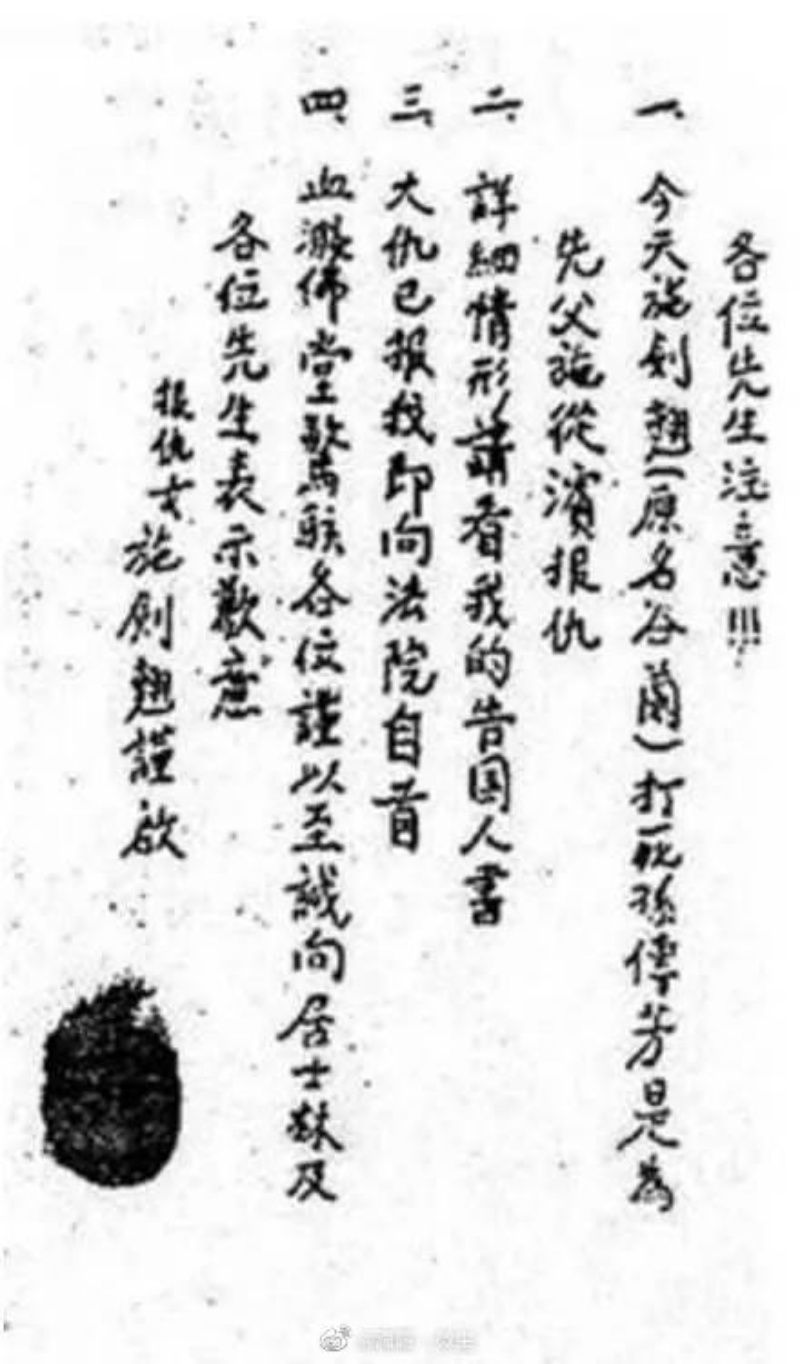 各位先生注意!!!
一、今天施剑翘(原名谷蘭)打死孫傳芳是為
先父施從濱报仇
二、詳細情形請看我的告国人書
三、大仇已報我即向法院自首
四、血濺佛堂驚駭各位謹以至誠向居士林及
各位先生表示歉意
报仇女施剑翘謹啟